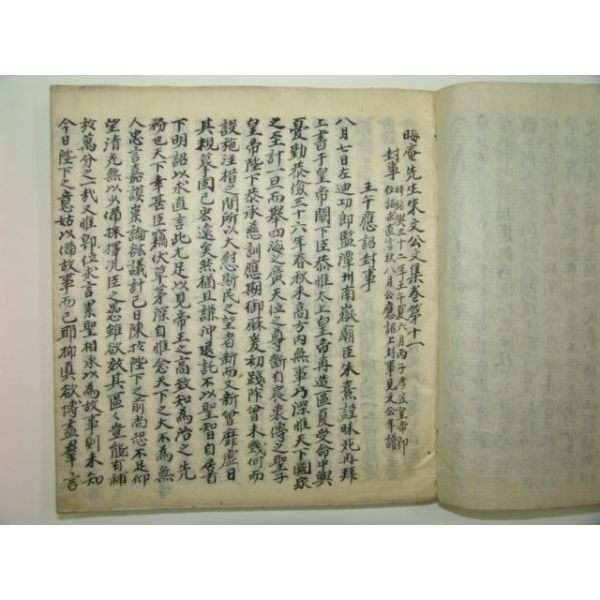 晦庵先生朱文公文集卷第十一
封事
時紹興三十二年壬午夏六月丙子孝宗皇帝卽
位詔求直言秋八月公應詔上封事見文公年譜
壬午應詔封事
八月七日左迪功郎監潭州南嶽廟臣朱熹謹昧死再拜
上書于皇帝闕下臣恭惟太上皇帝再造區夏受命中興
憂勤恭儉三十六年春秋未高方內無事乃深惟天下國家
之至計一旦而擧四海之廣天位之尊斷自宸衷傳之聖子
皇帝陛下恭承慈訓應期御曆爰初踐阼曾未幾何而
設施注措之間所以大慰斯民之望者新而又新曾靡虛日
其規摹固已宏遠矣然猶且謙沖退託不以聖智自居首
下明詔以求直言此尤足以見帝王之高致知為治之先
務也天下幸甚臣竊伏草茅深自惟念天下之大不為無
人忠言嘉謨崇論谹議計已日陳扵陛下之前尚恐不足仰
望清光無以少備採擇況臣之愚雖欲效其區〻豈能有補
扵萬分之一哉又惟卽位求言累聖相承以為故事則未知
今日陛下之意姑以備故事而已耶抑眞欲博盡羣言